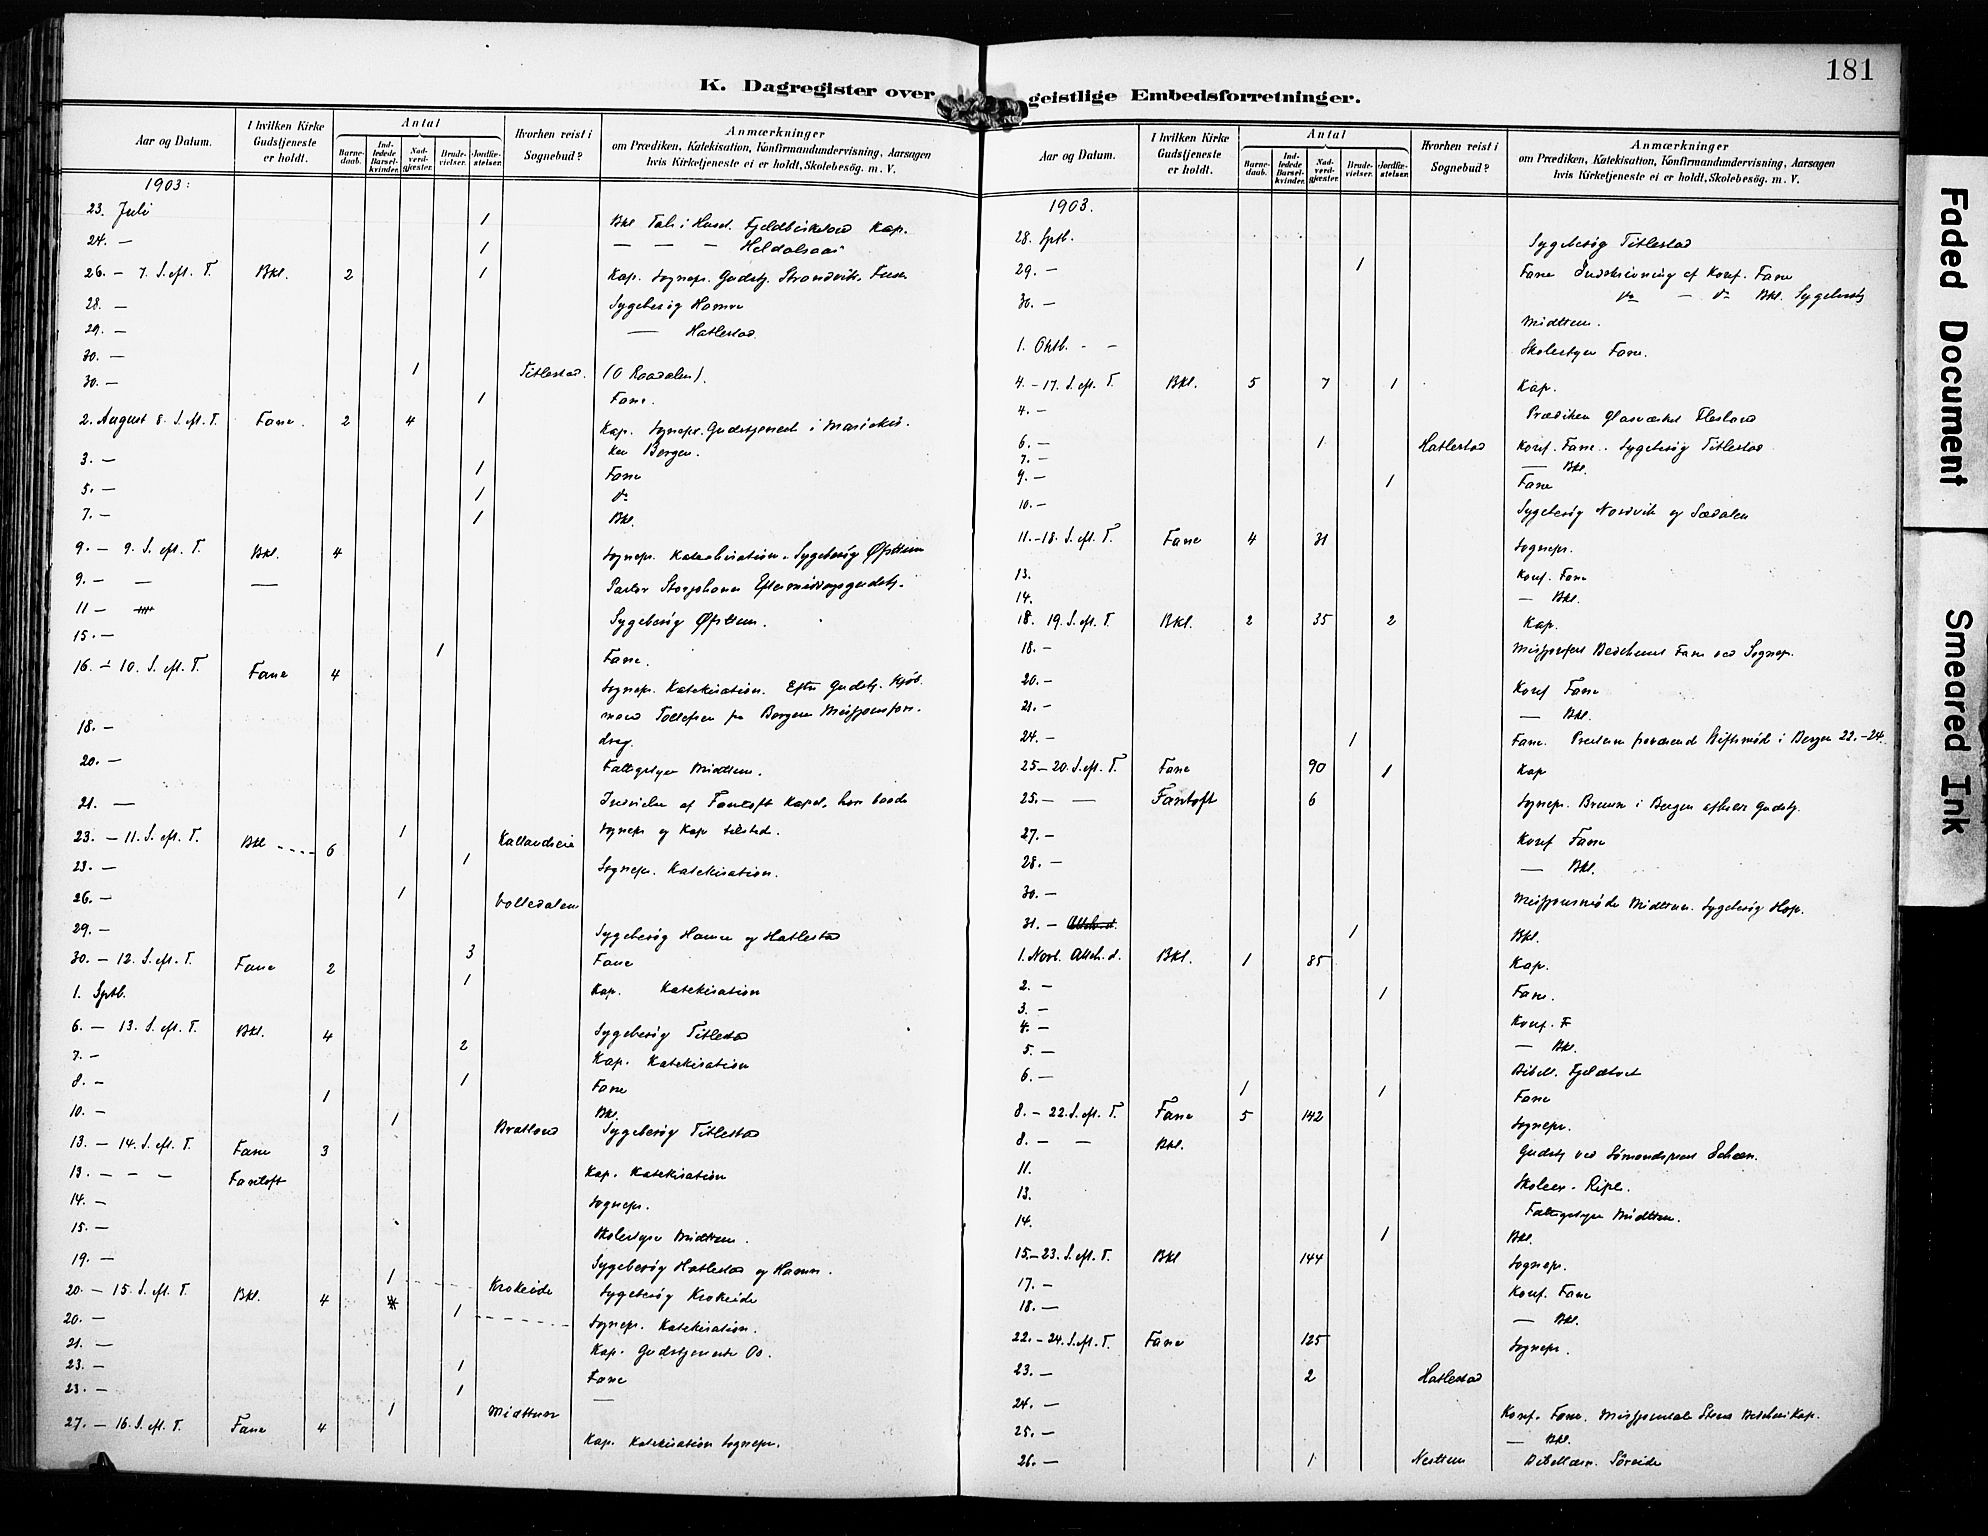 181
K. Dagregister over geistlige Embedsforretninger.
Aar og Datum. I hvilken Kirke Gudstjeneste er holdt. Antal Barnedaab. Indledede Barselkvinder. Nadverdgjester. Brudevielser. Jordfæstelser. Hvorhen reist i Sognebud? Anmærkninger om Prædiken, Katekisation, Konfirmandundervisning, Aarsagen hvis Kirketjeneste ei er holdt, Skolebesög. m. V.
1903:
23. Juli 1 Bkl Tale i Huset. Kap.
24. — 1 — — —
26. — 7. S. eft. T. Bkl. 2 1 Kap. Sognepr. Gudstj. Strandvik,
28. — Sygebesög Hamre
29. — — Hatlestad
30. — 1 Titlestad. (O Raadalen).
30. — 1 Fane.
2. August 8. S. eft. T. Fane. 2 4 Kap. Sognepr. Gudstjeneste i Mariekir-
ken Bergen.
3. — 1 Fane
5. — 1 do
7. — 1 Bkl.
9. — 9. S. eft. T. Bkl. 4 Sognepr. Katekisation. Sygebesög Øfsttun
9. — — — Pastor Storjohann Eftermiddagsgudstj.
11 — Sygebesög Øfsttun.
15. — 1 Fane.
16. — 10. S. eft. T. Fane 4 Sognepr. Katekisation. Efter Gudstj. Kjöb-
mand Tollefsen fra Bergen Missjonsfore-
drag.
18. — Fattigstyre Midttun.
20. —
21. — Indvielse af Fantoft Kapel, hvor baade
Sognepr og Kap tilsted.
23. — 11. S. eft. T. Bkl 6 1 Kallandseie
23. — 1 Sognepr. Katekisation.
26. — 1
29. — Sygebesög Hamre og Hatlestad
30. — 12. S. eft. T. Fane 2 3 Fane
1. Sptb. 1 Kap. Katekisation
6. — 13. S. eft. T. Bkl. 4 2 Sygebesög Titlestad
7. — Kap. Katekisation
8. — 1 1 Fane
10. — 1 Bratland Bkl.
Sygebesög Titlestad
13. — 14. S. eft. T. Fane 3
13. — — — Fantoft Kap. Katekisation
14. — Sognepr.
15. — Skolestyre Midttun.
19. — 1 Krokeide Sygebesög Hatlestad og Hamre.
20. — 15. S. eft. T. Bkl. 4 1 Sygebesög Krokeide
20. — Sognepr. Katekisation.
21. — Kap. Gudstjeneste Os.
23. — 1 Fane
23. — 1 —
1 Midttun
27. — 16. S. eft. T. Fane 4 Kap. Katekisation Sognepr.
Aar og Datum. I hvilken Kirke Gudstjeneste er holdt. Antal Barnedaab. Indledede Barselkvinder. Nadverdgjester. Brudevielser. Jordfæstelser. Hvorhen reist i Sognebud? Anmærkninger om Prædiken, Katekisation, Konfirmandundervisning, Aarsagen hvis Kirketjeneste ei er holdt, Skolebesög. m. V.
1903.
28. Sptb. Sygebesög Titlestad
29. — 1 Fane Indskrivning af Konf. Fane
30. — do — do Bkl. Sygebesög
Midttun.
1. Oktb. - - Skolestyre Fane.
4. — 17. S. eft. T. Bkl. 5 7 1 Kap.
4. — Prædiken Glasværket Flesland
6. — 1 Hatlestad Konf. Fane. Sygebesög Titlestad
7. — — Bkl.
9. — 1 Fane
10. — Sygebesög Nordvik og Sædalen
11. — 18. S. eft. T. Fane 4 31 Sognepr.
13. Konf. Fane
14. — Bkl.
18. 19. S. eft. T. Bkl. 2 35 2 Kap.
18. — Fane ved Sognepr.
20. — Konf Fane
21. — — Bkl.
24. — 1 Fane. Presterne Stiftsmöde i Bergen 22.—24.
25 — 20. S. eft. T. Fane 90 1 Kap
25. — — Fantoft 6 Sognepr. i Bergen Gudstj.
27. — Konf Fane
28. — — Bkl.
30. — Missjonsmöde Midttun. Sygebesög Hop.
31. — 1 Bkl.
1. Novb. Alleh. d. Bkl. 1 85 Kap.
2. — 1 Fane.
3. — Konf. F
4. — — Bkl.
5. — Bibell. Fjeldtvet
6. — 1 1 Fane
8. — 22. S. eft. T. Fane 5 142 Sognepr.
8. — — Bkl. Gudstj ved Sömandsprest
11. Ripl.
13. Fattigstyre Midttun.
14. 1 Bkl.
15. — 23. S. eft. T. Bkl 144 Sognepr.
17. — Konf. Fane
18. — — Bkl.
22. — 24. S. eft. T. Fane 125 Sognepr.
23. — 2 Hatlestad
24. — Konf. Fane.
25. — — Bkl.
26. — 1 Nesttun Bibellæsn. Söreide
Faded Document
Smeared Ink